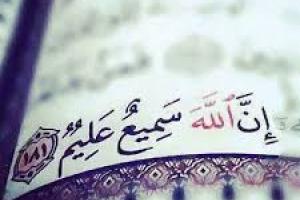 إِنَّ ٱللَّهَ سَمِيعٌ عَلِيمٌ ١٨١